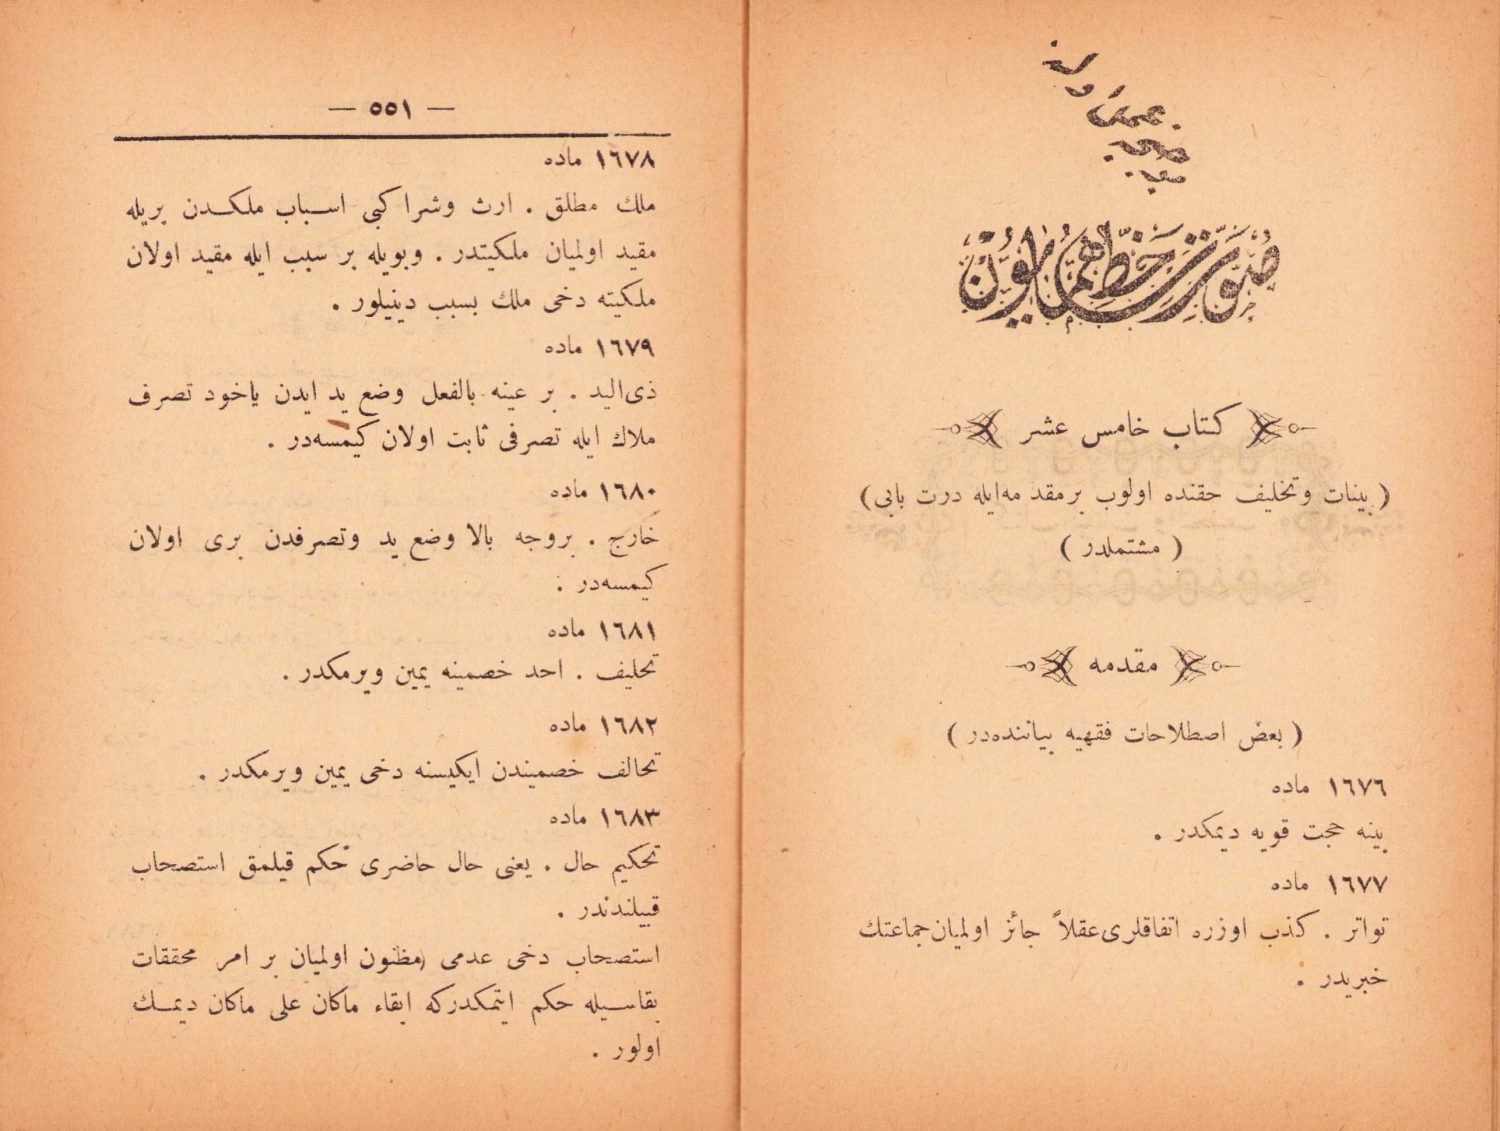 موجبنجه عمل اولنه
صورت خط همايون
كتاب خامس عشر
( بينات وتحليف حقنده اولوب برمقدمه ايله درت بابى )
( مشتملدر )
مقدمه
( بعض اصطلاحات فقهيه بياننده‌در )
١٦٧٦ ماده
بينه حجت قويه ديمكدر .
١٦٧٧ ماده
تواتر . كذب اوزره اتفاقلرى عقلاً جائز اولميان جماعتك
خبريدر .
— ٥٥١ —
١٦٧٨ ماده
ملك مطلق . ارث وشرا كبى اسباب ملكدن بريله
مقيد اولميان ملكيتدر . وبويله بر سبب ايله مقيد اولان
ملكيته دخى ملك بسبب دينيلور .
١٦٧٩ ماده
ذى اليد . بر عينه بالفعل وضع يد ايدن ياخود تصرف
ملاك ايله تصرفى ثابت اولان كيمسه‌در .
١٦٨٠ ماده
خارج . بروجه بالا وضع يد وتصرفدن برى اولان
كيمسه‌در .
١٦٨١ ماده
تحليف . احد خصمينه يمين ويرمكدر .
١٦٨٢ ماده
تحالف خصميندن ايكيسنه دخى يمين ويرمكدر .
١٦٨٣ ماده
تحكيم حال . يعنى حال حاضرى حكم قيلمق استصحاب
قبيلندندر .
استصحاب دخى عدمى مظنون اولميان بر امر محققات
بقاسيله حكم ايتمكدركه ابقاء ماكان على ماكان ديمك
اولور .